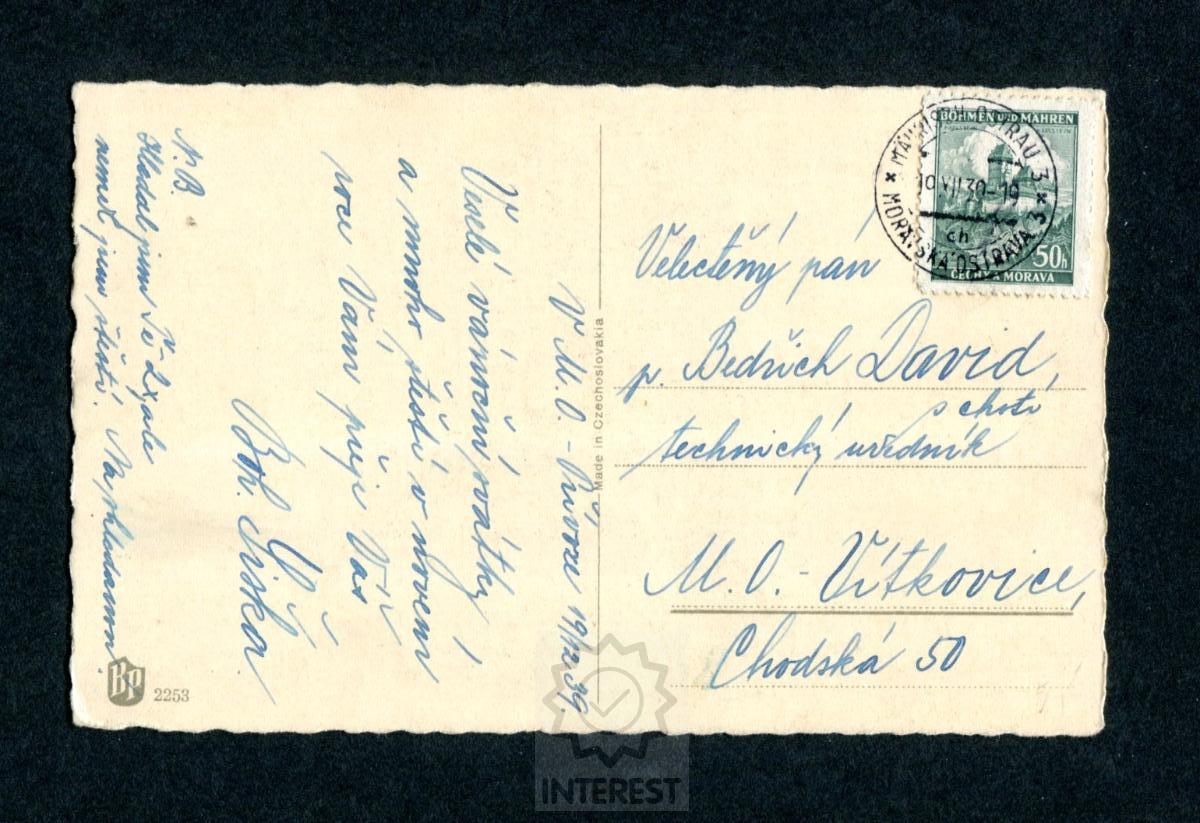 V M. O. - Přívoze 19/12 39.
Veselé vánoční svátky
a mnoho štěstí v novém
roce Vám přeje Váš
Boh. Šiška.
N. B.
Hledal jsem Tě 2x ale
neměl jsem štěstí. Na shledanou.
BP 2253
Made in Czechoslovakia
BÖHMEN UND MÄHREN
50h
ČECHY A MORAVA
MÄHRISCH OSTRAU 3
MORAVSKÁ OSTRAVA 3
ch
Velectěný pán
p. Bedřich David,
s chotí
technický uředník
M. O. - Vítkovice,
Chodská 50
INTEREST